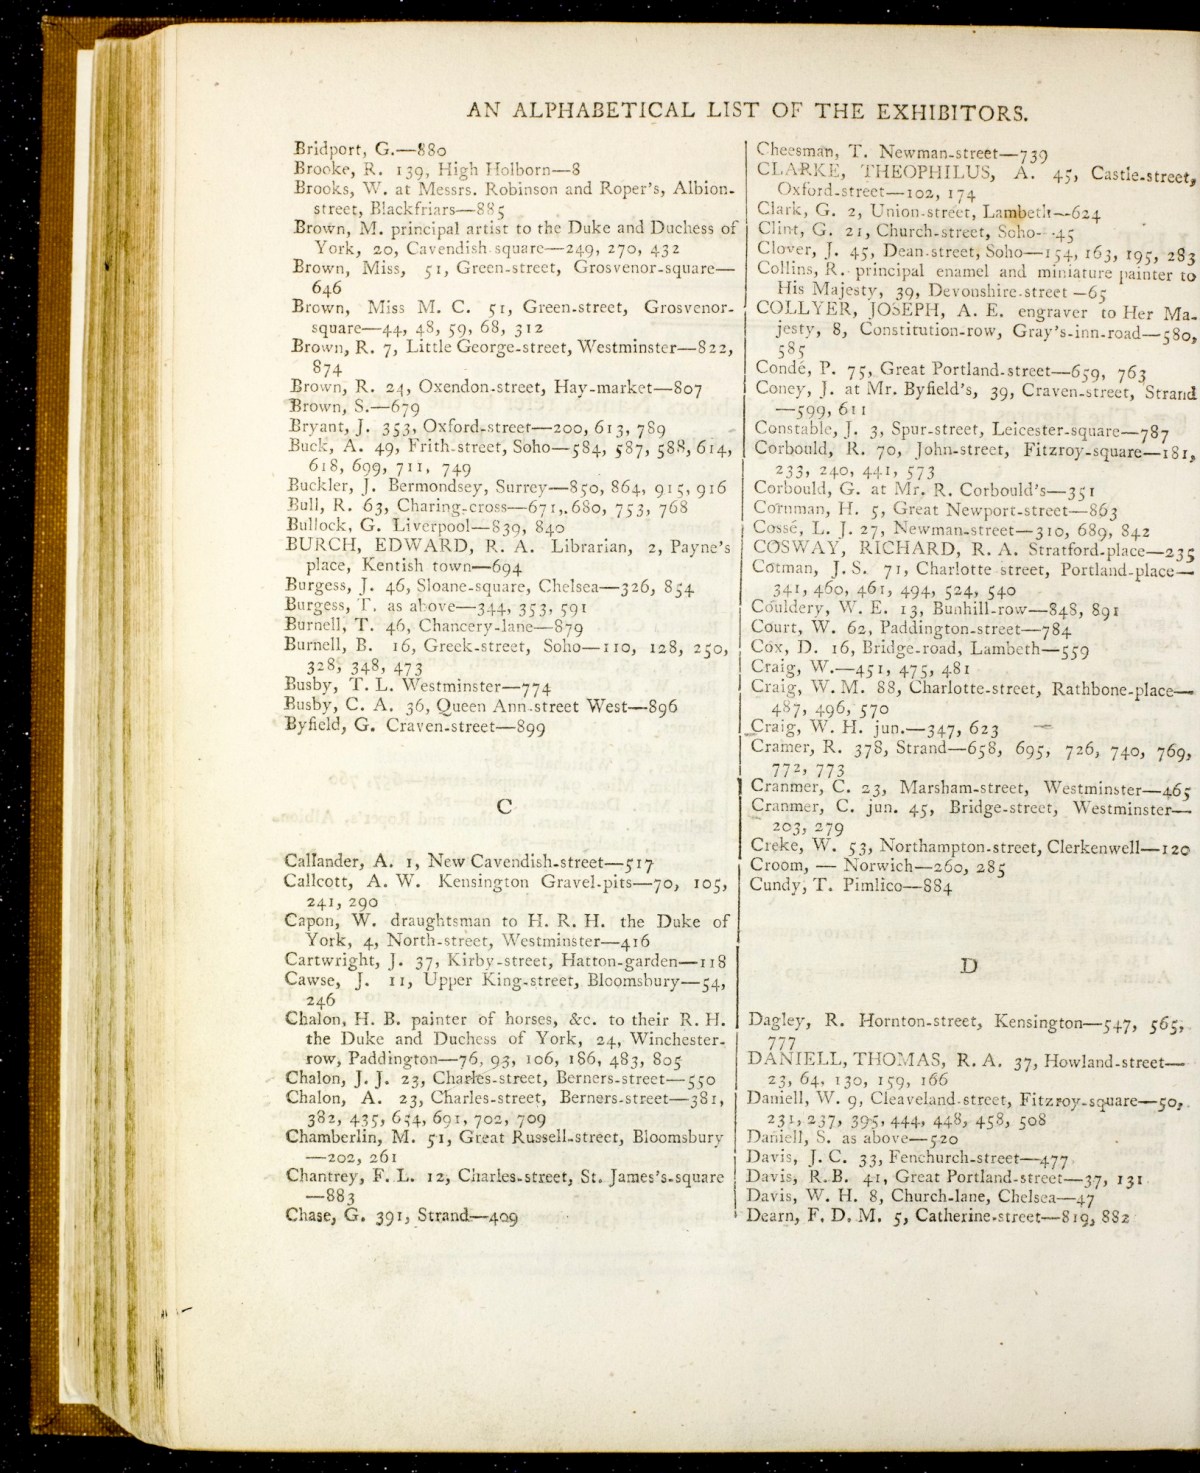 AN ALPHABETICAL LIST OF THE EXHIBITORS.
Bridport, G.—880
Brooke, R. 139, High Holborn—8
Brooks, W. at Messrs. Robinson and Roper's, Albion-
street, Blackfriars—885
Brown, M. principal artist to the Duke and Duchess of
York, 20, Cavendish square—249, 270, 432
Brown, Miss, 51, Green-street, Grosvenor-square—
646
Brown, Miss M. C. 51, Green-street, Grosvenor-
square—44, 48, 59, 68, 312
Brown, R. 7, Little George-street, Westminster—822,
874
Brown, R. 24, Oxendon-street, Hay-market—807
Brown, S.—679
Bryant, J. 353, Oxford-street—200, 613, 789
Buck, A. 49, Frith-street, Soho—584, 587, 588, 614,
618, 699, 711, 749
Buckler, J. Bermondsey, Surrey—850, 864, 915, 916
Bull, R. 63, Charing-cross—671, 680, 753, 768
Bullock, G. Liverpool—839, 840
BURCH, EDWARD, R. A. Librarian, 2, Payne's
place, Kentish town—694
Burgess, J. 46, Sloane-square, Chelsea—326, 854
Burgess, T. as above—344, 353, 591
Burnell, T. 46, Chancery-lane—879
Burnell, B. 16, Greek-street, Soho—110, 128, 250,
328, 348, 473
Busby, T. L. Westminster—774
Busby, C. A. 36, Queen Ann-street West—896
Byfield, G. Craven-street—899
C
Callander, A. 1, New Cavendish-street—517
Callcott, A. W. Kensington Gravel-pits—70, 105,
241, 290
Capon, W. draughtsman to H. R. H. the Duke of
York, 4, North-street, Westminster—416
Cartwright, J. 37, Kirby-street, Hatton-garden—118
Cawse, J. 11, Upper King-street, Bloomsbury—54,
246
Chalon, H. B. painter of horses, &c. to their R. H.
the Duke and Duchess of York, 24, Winchester-
row, Paddington—76, 93, 106, 186, 483, 805
Chalon, J. J. 23, Charles-street, Berners-street—550
Chalon, A. 23, Charles-street, Berners-street—381,
382, 435, 654, 691, 702, 709
Chamberlin, M. 51, Great Russell-street, Bloomsbury
—202, 261
Chantrey, F. L. 12, Charles-street, St. James's-square
—883
Chase, G. 391, Strand—409
Cheesman, T. Newman-street—739
CLARKE, THEOPHILUS, A. 45, Castle-street,
Oxford-street—102, 174
Clark, G. 2, Union-street, Lambeth—624
Clint, G. 21, Church-street, Soho—45
Clover, J. 45, Dean-street, Soho—154, 163, 195, 283
Collins, R. principal enamel and miniature painter to
His Majesty, 39, Devonshire-street—65
COLLYER, JOSEPH, A. E. engraver to Her Ma-
jesty, 8, Constitution-row, Gray's-inn-road—580,
585
Condé, P. 75, Great Portland-street—659, 763
Coney, J. at Mr. Byfield's, 39, Craven-street, Strand
—599, 611
Constable, J. 3, Spur-street, Leicester-square—787
Corbould, R. 70, John-street, Fitzroy-square—181,
233, 240, 441, 573
Corbould, G. at Mr. R. Corbould's—351
Cornman, H. 5, Great Newport-street—863
Cossé, L. J. 27, Newman-street—310, 689, 842
COSWAY, RICHARD, R. A. Stratford-place—235
Cotman, J. S. 71, Charlotte street, Portland-place—
341, 460, 461, 494, 524, 540
Couldery, W. E. 13, Bunhill-row—848, 891
Court, W. 62, Paddington-street—784
Cox, D. 16, Bridge-road, Lambeth—559
Craig, W.—451, 475, 481
Craig, W. M. 88, Charlotte-street, Rathbone-place—
487, 496, 570
Craig, W. H. jun.—347, 623
Cramer, R. 378, Strand—658, 695, 726, 740, 769,
772, 773
Cranmer, C. 23, Marsham-street, Westminster—465
Cranmer, C. jun. 45, Bridge-street, Westminster—
203, 279
Creke, W. 53, Northampton-street, Clerkenwell—120
Croom, — Norwich—260, 285
Cundy, T. Pimlico—884
D
Dagley, R. Hornton-street, Kensington—547, 565,
777
DANIELL, THOMAS, R. A. 37, Howland-street—
23, 64, 130, 159, 166
Daniell, W. 9, Cleaveland-street, Fitzroy-square—50,
231, 237, 395, 444, 448, 458, 508
Daniell, S. as above—520
Davis, J. C. 33, Fenchurch-street—477
Davis, R. B. 41, Great Portland-street—37, 131
Davis, W. H. 8, Church-lane, Chelsea—47
Dearn, F. D. M. 5, Catherine-street—819, 882